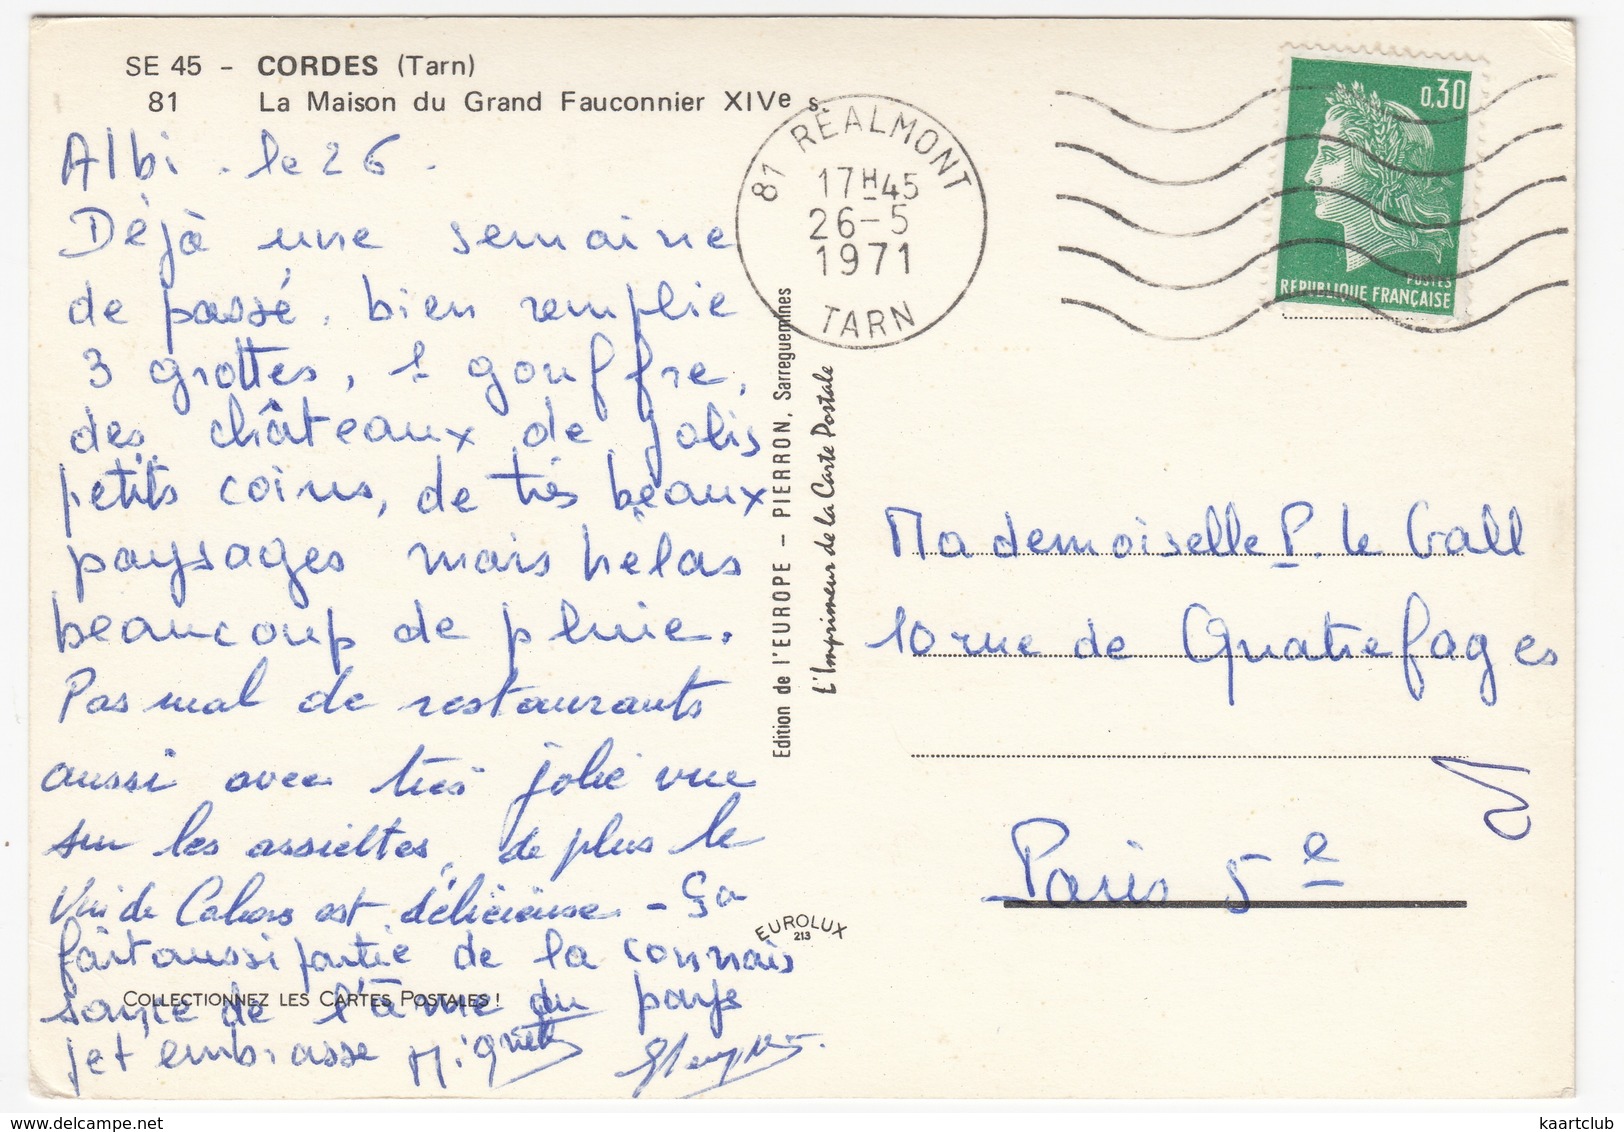 SE 45 - CORDES (Tarn)
81 La Maison du Grand Fauconnier XIVe s.
Albi . le 26 .
Déjà une semaine
de passé, bien remplie
3 grottes, 1 gouffre,
des châteaux de jolis
petits coins, de très beaux
paysages mais hélas
beaucoup de pluie.
Pas mal de restaurants
aussi avec très jolie vue
sur les assiettes, de plus le
Vin de Cahors est délicieuse - ça
fait aussi partie de la connais
sance de l'âme du pays
je t'embrasse
COLLECTIONNEZ LES CARTES POSTALES !
Edition de l'EUROPE - PIERRON, Sarreguemines
L'Imprimeur de la Carte Postale
EUROLUX
213
81 REALMONT
17H45
26-5
1971
TARN
0,30
POSTES
REPUBLIQUE FRANÇAISE
Mademoiselle P. Le Gall
10 rue de Quatrefages
Paris 5e
kaartclub